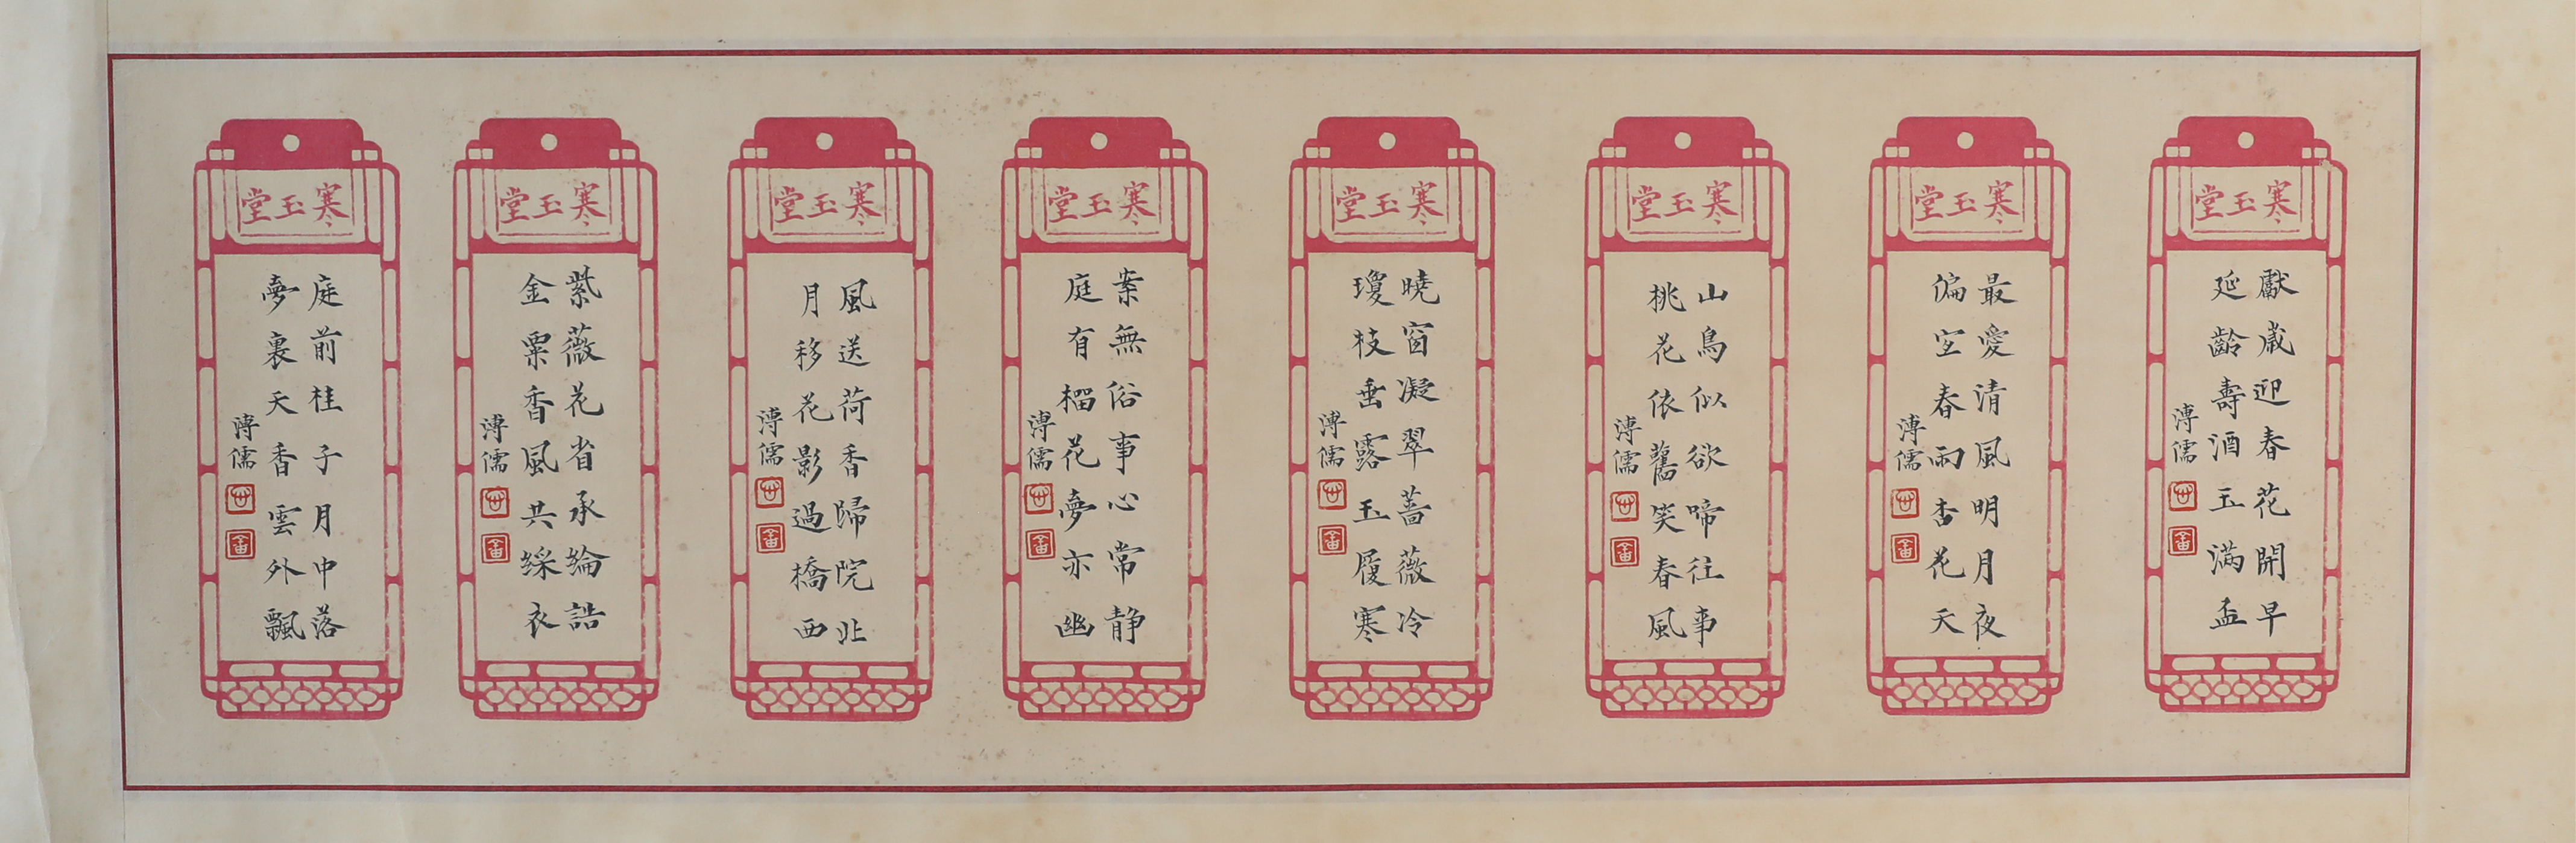 寒玉堂
獻歲迎春花開早
延齡壽酒玉滿盃
溥儒
寒玉堂
最愛清風明月夜
偏宜春雨杏花天
溥儒
寒玉堂
山鳥似欲啼往事
桃花依舊笑春風
溥儒
寒玉堂
曉窗凝翠薔薇冷
瓊枝垂露玉履寒
溥儒
寒玉堂
案無俗事心常静
庭有榴花夢亦幽
溥儒
寒玉堂
風送荷香歸院北
月移花影過橋西
溥儒
寒玉堂
紫薇花省承綸誥
金粟香風共綵衣
溥儒
寒玉堂
庭前桂子月中落
夢裏天香雲外飄
溥儒